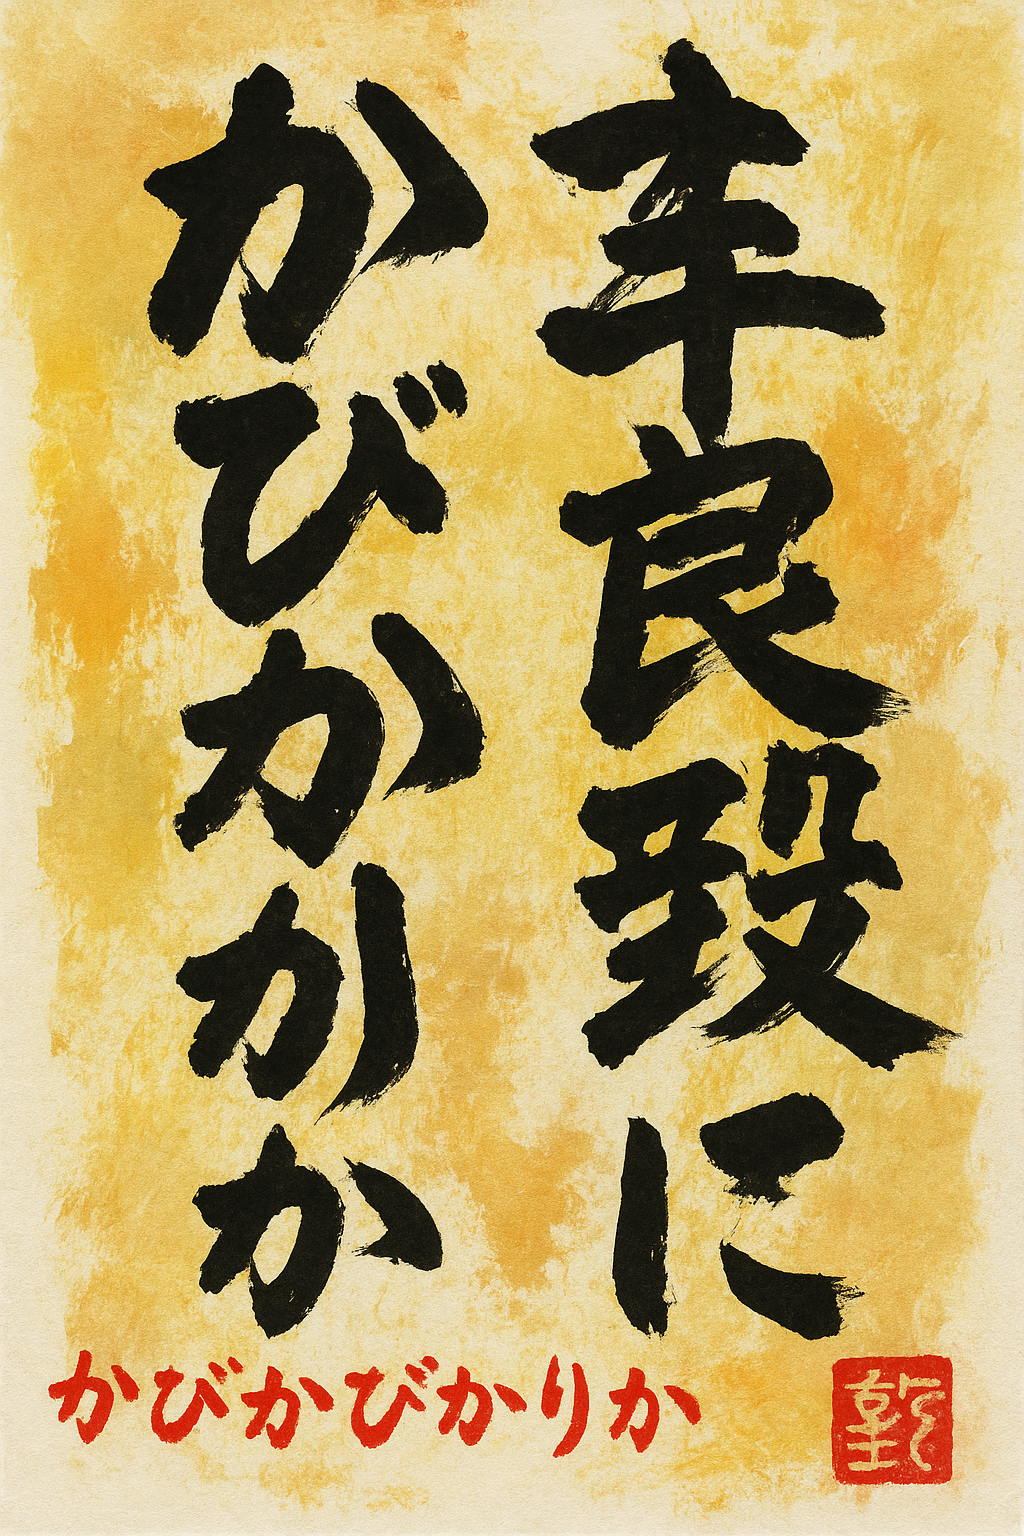 良に
かびかかか
かびかびかりか